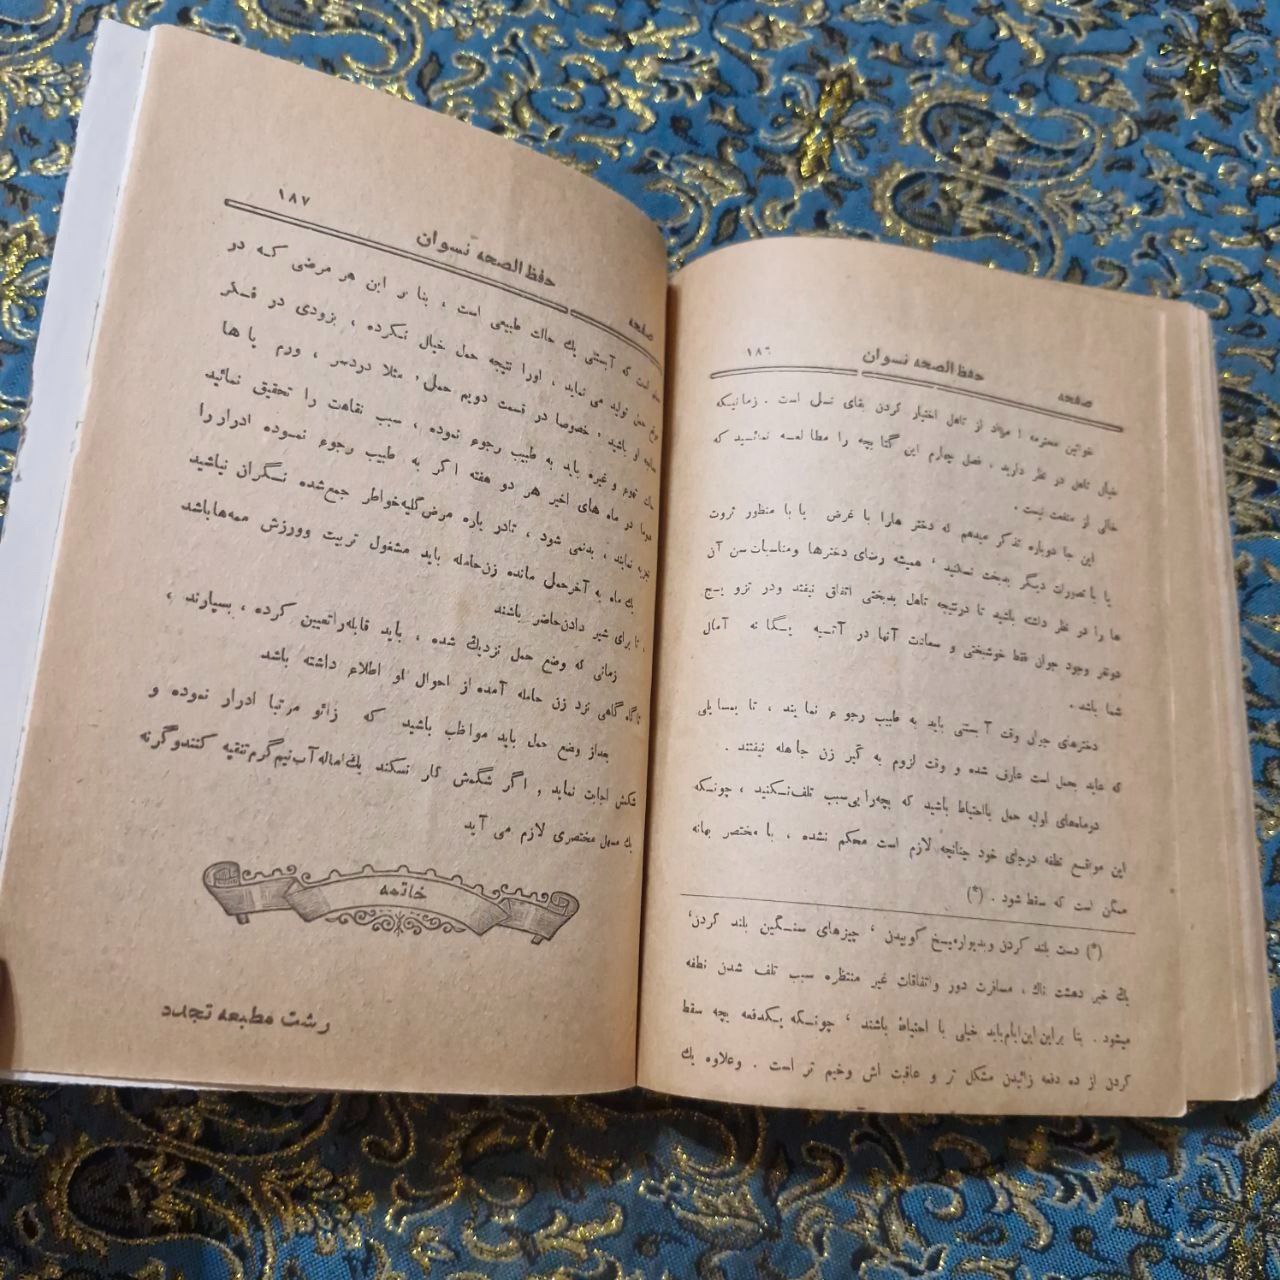 صفحه حفظ الصحه نسوان ۱۸٦
خواتین محترمه ! مراد از تاهل اختیار کردن بقای نسل است . زمانیکه
خیال تاهل در نظر دارید ، فصل چهارم این کتابچه را مطالعه نمائید که
خالی از منفعت نیست .
این جا دوباره تذکر میدهم که دختر هارا با غرض یا با منظور ثروت
یا با تصورات دیگر بدبخت نسکنید ، همیشه رضای دخترها ومناسبات سن آن
ها را در نظر داشته باشید تا درنتیجه تاهل بدبختی اتفاق نیفتد ودر تزویج
دونفر وجود جوان فقط خوشبختی و سعادت آنها در آتیه یگانه آمال
شما باشد .
دخترهای جوان وقت آبستنی باید به طبیب رجوع نمایند ، تا بمسایلی
که عاید بحمل است عارف شده و وقت لزوم به گیر زن جاهله نیفتند .
درماههای اولیه حمل بااحتیاط باشید که بچه‌را بی‌سبب تلف‌نسکنید ، چونسکه
این مواقع نطفه درجای خود چنانچه لازم است محکم نشده ، با مختصر بهانه
ممکن است که سقط شود . (*)
(*) دست بلند کردن وبدیواره‌میخ کوبیدن ، چیزهای سنگین بلند کردن،
یك خبر دهشت ناك ، مسافرت دور واتفاقات غیر منتظره سبب تلف شدن نطفه
میشود . بنا براین این‌ایام‌باید خیلی با احتیاط باشند ، چونسکه یکدفعه بچه سقط
کردن از ده دفعه زائیدن مشکل تر و عاقبت اش وخیم تر است . وعلاوه یك
صفحه حفظ الصحه نسوان ۱۸۷
است که آبستنی یك حالت طبیعی است ، بنا بر این هر مرضی که در
حمل تولید می نماید ، اورا نتیجه حمل خیال نکرده ، بزودی در فکر
او باشید ، خصوصا در قسمت دویم حمل، مثلا دردسر ، ورم پا ها
و غیره باید به طبیب رجوع نموده ، سبب نقاهت را تحقیق نمائید
در ماه های اخیر هر دو هفته اکر به طبیب رجوع نموده ادراررا
نمایند ، بدنمی شود ، تادر باره مرض‌گلیه‌خواطر جمع‌شده نسگران نباشید
یك ماه به آخرحمل مانده زن‌حامله باید مشغول تربیت وورزش ممه‌هاباشد
، تا برای شیر دادن‌حاضر باشند
زمانی که وضع حمل نزدیك شده ، باید قابله‌راتعیین کرده ، بسپارند ،
تاگاه گاهی نزد زن حامله آمده از احوال او اطلاع داشته باشد
بعداز وضع حمل باید مواظب باشید که زائو مرتبا ادرار نموده و
شکمش اجابت نماید , و اگر شگمش کار نسکند یك‌اماله آب‌نیم‌گرم‌تنقیه کنندوگرنه
یك مسهل مختصری لازم می آید
خاتمه
رشت مطبعه تجدد